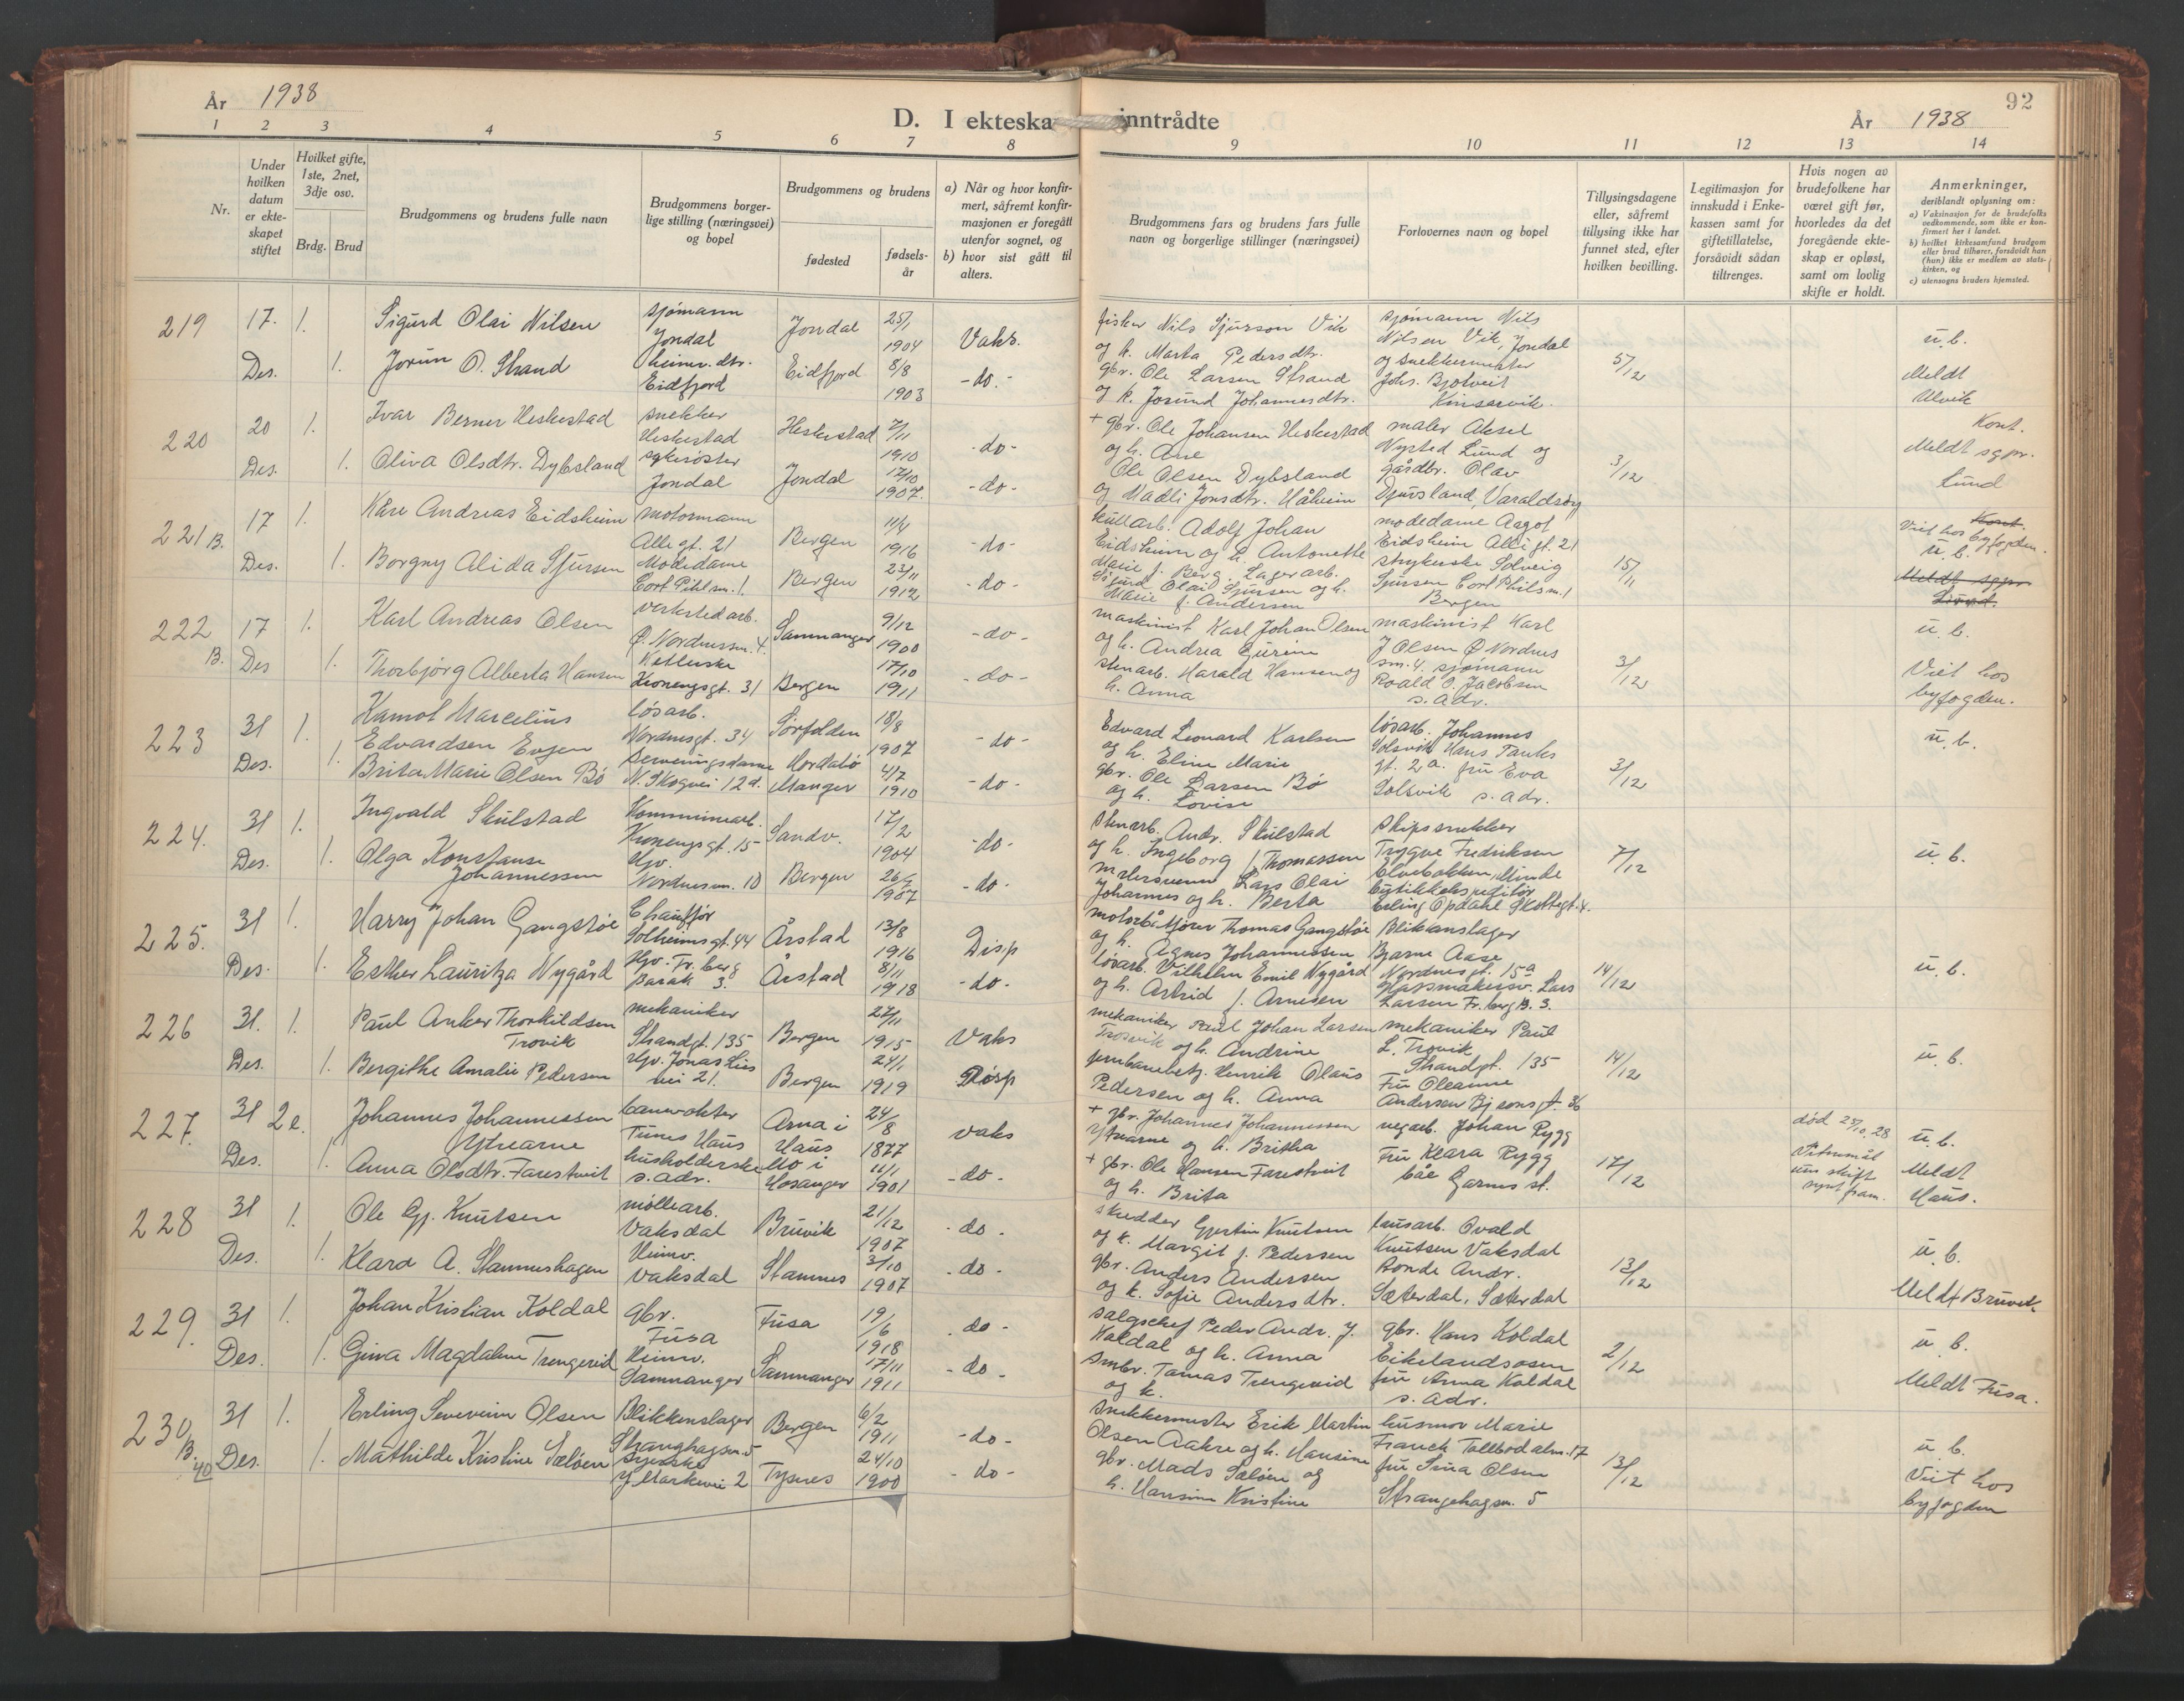 År 1938
D. I ekteska inntrådte
92
År 1938
1 2 3 4 5 6 7 8 9 10 11 12 13 14
Nr.
Under hvilken datum er ekteskapet stiftet
Hvilket gifte, 1ste, 2net, 3dje osv.
Brdg. Brud
Brudgommens og brudens fulle navn
Brudgommens borgerlige stilling (næringsvei) og bopel
Brudgommens og brudens
fødested
fødselsår
a) Når og hvor konfirmert, såfremt konfirmasjonen er foregått utenfor sognet, og
b) hvor sist gått til alters.
Brudgommens fars og brudens fars fulle navn og borgerlige stillinger (næringsvei)
Forlovernes navn og bopel
Tillysingsdagene eller, såfremt tillysing ikke har funnet sted, efter hvilken bevilling.
Legitimasjon for innskudd i Enkekassen samt for giftetillatelse, forsåvidt sådan tiltrenges.
Hvis nogen av brudefolkene har været gift før, hvorledes da det foregående ekteskap er opløst, samt om lovlig skifte er holdt.
Anmerkninger, deriblandt oplysning om:
a) Vaksinasjon for de brudefolks vedkommende, som ikke er konfirmert her i landet.
b) hvilket kirkesamfund brudgom eller brud tilhører, forsåvidt han (hun) ikke er medlem av statskirken, og
c) utensogns bruders hjemsted.
219 17. Des. 1. 1.
Sigurd Olai Nilsen
Jorun O. Strand
sjømann
Jondal
heimv. dtr.
Eidfjord
Jondal 25/1 1904 Vaks.
Eidfjord 8/8 1903 - do. -
fisker Nils Sjurson Vik
og h. Marta Pedersdtr.
gbr. Ole Larsen Strand
og k. Jorund Johannesdtr.
sjømann Nils
Nilsen Vik, Jondal
og snekkermester
Johs. Bjotveit
Kinsarvik.
5/12
u. b.
Meldt
Ulvik
220 20 Des. 1. 1.
Ivar Berner Heskestad
Oliva Olsdtr. Dybsland
snekker
Heskestad
sykesøster
Jondal
Heskestad 7/11 1910 - do -
Jondal 12/10 1907. - do -
+ gbr. Ole Johansen Heskestad
og h. Ane
Ole Olsen Dybsland
og Madli Jonsdtr. Håheim
maler Aksel
Nysted Lund og
gårdbr. Olav
Djuvsland, Varaldsøy
3/12
Kont.
Meldt sgpr.
Lund
221 B. 17 Des. 1. 1.
Kåre Andreas Eidsheim
Borgny Alida Sjursen
motormann
Alle gt. 21
Modedame
Cort Pihl sm. 1.
Bergen 11/4 1916 - do -
Bergen 23/11 1912 - do -
kullarb. Adolf Johan
Eidsheim og h. Antonette
Marie f. Berg. Lagerarb.
Sigurd Olai Sjursen og h.
Marie f. Andersen
modedame Aagot
Eidsheim Allégt. 21
strykerske Solveig
Sjursen Cort Pihlsm. 1
Bergen
15/11
Kont.
Viet hos byfogden.
u. b.
Meldt sgpr.
Lund.
222 B. 17 Des 1. 1.
Karl Andreas Olsen
Thorbjörg Alberta Hansen
verkstedarb.
Ø. Nordnessm. 4.
Kronengsgt. 31
Samnanger 9/12 1900 - do -
Bergen 17/10 1911 - do -
maskinist Karl Johan Olsen
og h. Andrea Gurine
stenarb. Harald Hansen og
h. Anna
maskinist Karl
J Olsen Ø Nordnes
sm. 4. sjømann
Roald O. Jacobsen
s. adr.
3/12
u. b.
Viet hos
byfogden.
223 31 Des. 1. 1.
Kamol Marcelius
Edvardsen Evjen
Brita Marie Olsen Bö
løsarb.
Nordnesgt. 34
serveringsdame
N. Skogvei 12 d.
Sørfolden 18/8 1907 - do -
Hordabø, Manger 4/7 1910 - do -
Edvard Leonard Karlsen
og h. Eline Marie
gbr. Ole Larsen Bö
og h. Lovise
løsarb. Johannes
Solsvik Hans Tanks
gt. 2 a. fru Eva
Solsvik s. adr.
3/12
u. b.
224. 31 Des. 1. 1.
Ingvald Skulstad
Olga Konstanse
Johannessen
Kommunearb.
Kronengsgt. 15
Hjv.
Nordnesm. 10
Sandv. 17/2 1904 - do -
Bergen 1907 - do -
stenarb. Andr. Skulstad
og h. Ingeborg f. Thomassen
malersvenn Lars Olai
Johannes og h. Berta
skipssnekker
Trygve Fredriksen
Elvebakken, Minde
Erling Opdahl Skottegt. 4.
7/12
u. b.
225. 31 Des. 1. 1.
Harry Johan Gangstøe
Esther Lauritza Nygård
Chauffør
Solheimsgt. 44
Hjv. Fr. berg
barak 3.
Årstad 13/8 1916 Disp
Årstad 8/11 1918 - do -
motorbåtfører Thomas Gangstøe
og h. Agnes Johannessen
løsarb. Vilhelm Emil Nygård
og h. Astrid f. Arnesen
Blikkenslager
Bjarne Aase
Nordnesgt. 15 a
Lars
Larsen Fr. berg B. 3.
14/12
u. b.
226 31. Des. 1. 1.
Paul Anker Thorkildsen
Trovik
Bergithe Amalie Pedersen
mekaniker
Strandgt. 135
Hjv. Jonas Lies
vei 21.
Bergen 1915 Vaks
Bergen 24/1 1919 Disp
mekaniker Paul Johan Larsen
Trosvik og h. Andrine
jernbanebetj. Henrik Olaus
Pedersen og h. Anna
mekaniker Paul
L. Trovik
Strandgt. 135
Fru Oleanne
Andersen Bjørnsgt. 36
14/12
u. b.
227. 31 Des. 2e. 1.
Johannes Johannessen
Ytrearne
Anna Olsdtr. Farestveit
banevokter
Tunes Haus
husholderske
s. adr.
Arna i Haus 24/8 1877 vaks
Mo i Hosanger 11/1 1901 - do -
+ gbr. Johannes Johannessen
Ytrearne og h. Britha
+ gbr. Ole Hansen Farestveit
og h. Brita
vegarb. Johan Rygg
Fru Klara Rygg
båe Garnes st.
17/12
død 25/10 28
Vitnemål
um skift
synt fram.
u. b.
Meldt
Haus.
228 31 Des. 1. 1.
Ole Gj. Knutsen
Klara A. Stamneshagen
møllearb.
Vaksdal
Heimv.
Vaksdal
Bruvik 21/12 1907 - do -
Stamnes 3/10 1907 - do -
skredder Gjertin Knutsen
og k. Margit f. Pedersen
gbr. Anders Andersen
og k. Sofie Andersdtr.
brusarb. Ovald
Knutsen Vaksdal
Bonde Andr.
Sæterdal, Sæterdal
13/12
u. b.
Meldt Bruvik
229. 31 Des. 1. 1.
Johan Kristian Koldal
Gina Magdalene Trengereid
gbr.
Fusa
Heimv.
Samnanger
Fusa 19/6 1918 - do -
Samnanger 17/11 1911 - do -
salgschef Peder Andr. J.
Koldal og h. Anna
smbr. Tomas Trengereid
og k.
gbr. Hans Koldal
Eikelandsosen
fru Anna Koldal
s. adr.
2/12
u. b.
Meldt Fusa.
230 B. 40 31 Des. 1. 1.
Erling Severin Olsen
Mathilde Kristine Sæløen
Blikkenslager
Strangehagen. 5
syerske
Y. Markevei 2
Bergen 6/2 1911 - do -
Tysnes 24/10 1900 - do -
snekkermester Erik Martin
Olsen Aakre og h. Hansine
gbr. Mads Sæløen og
h. Hansine Kristine
husmor Marie
Franck Tollbodalm. 17
fru Sina Olsen
Strangehagen. 5
13/12
u. b.
Viet hos
byfogden